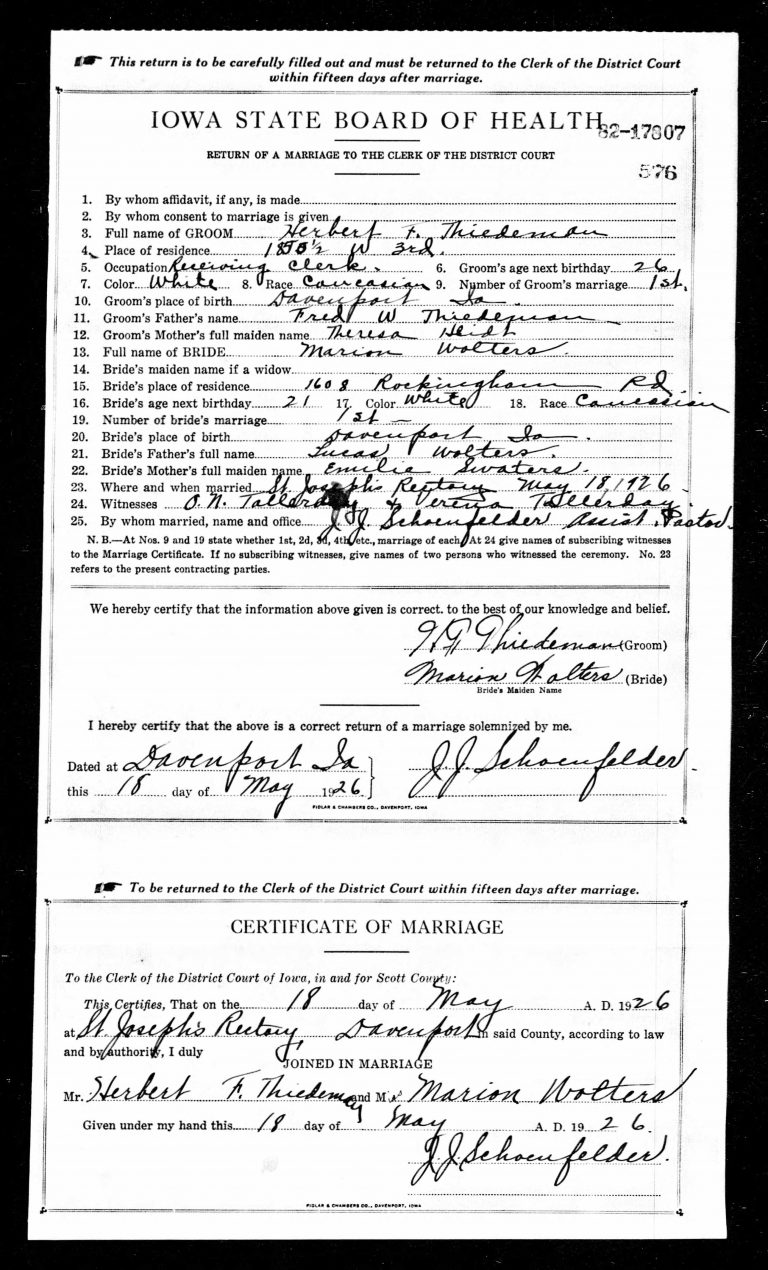 This return is to be carefully filled out and must be returned to the Clerk of the District Court
within fifteen days after marriage.
IOWA STATE BOARD OF HEALTH
82-17807
RETURN OF A MARRIAGE TO THE CLERK OF THE DISTRICT COURT
576
1. By whom affidavit, if any, is made
2. By whom consent to marriage is given
3. Full name of GROOM Herbert F. Thiedeman
4. Place of residence W 3rd.
5. Occupation Receiving Clerk. 6. Groom's age next birthday 26
7. Color White 8. Race Caucasian 9. Number of Groom's marriage 1st.
10. Groom's place of birth Davenport Ia.
11. Groom's Father's name Fred W Thiedeman
12. Groom's Mother's full maiden name Theresa Heidt
13. Full name of BRIDE Marion Wolters.
14. Bride's maiden name if a widow
15. Bride's place of residence 1608 Rockingham Rd
16. Bride's age next birthday 21 17. Color White 18. Race Caucasian
19. Number of bride's marriage 1st —
20. Bride's place of birth Davenport Ia.
21. Bride's Father's full name Lucas Wolters.
22. Bride's Mother's full maiden name Emilie Swaters.
23. Where and when married St Joseph's Rectory May 18, 1926
24. Witnesses O. N. Tallerday & Verena Tallerday.
25. By whom married, name and office J. J. Schoenfelder Assist. Pastor.
N. B.—At Nos. 9 and 19 state whether 1st, 2d, 3d, 4th, etc., marriage of each. At 24 give names of subscribing witnesses
to the Marriage Certificate. If no subscribing witnesses, give names of two persons who witnessed the ceremony. No. 23
refers to the present contracting parties.
We hereby certify that the information above given is correct. to the best of our knowledge and belief.
H F Thiedeman (Groom)
Marion Wolters (Bride)
Bride's Maiden Name
I hereby certify that the above is a correct return of a marriage solemnized by me.
Dated at Davenport Ia
J. J. Schoenfelder.
this 18 day of May 1926.
FIDLAR & CHAMBERS CO., DAVENPORT, IOWA
To be returned to the Clerk of the District Court within fifteen days after marriage.
CERTIFICATE OF MARRIAGE
To the Clerk of the District Court of Iowa, in and for Scott County:
This Certifies, That on the 18 day of May A. D. 1926
at St Joseph's Rectory, Davenport in said County, according to law
and by authority, I duly
JOINED IN MARRIAGE
Mr. Herbert F. Thiedeman and Ms Marion Wolters
Given under my hand this 18 day of May A. D. 1926.
J. J. Schoenfelder.
FIDLAR & CHAMBERS CO., DAVENPORT, IOWA